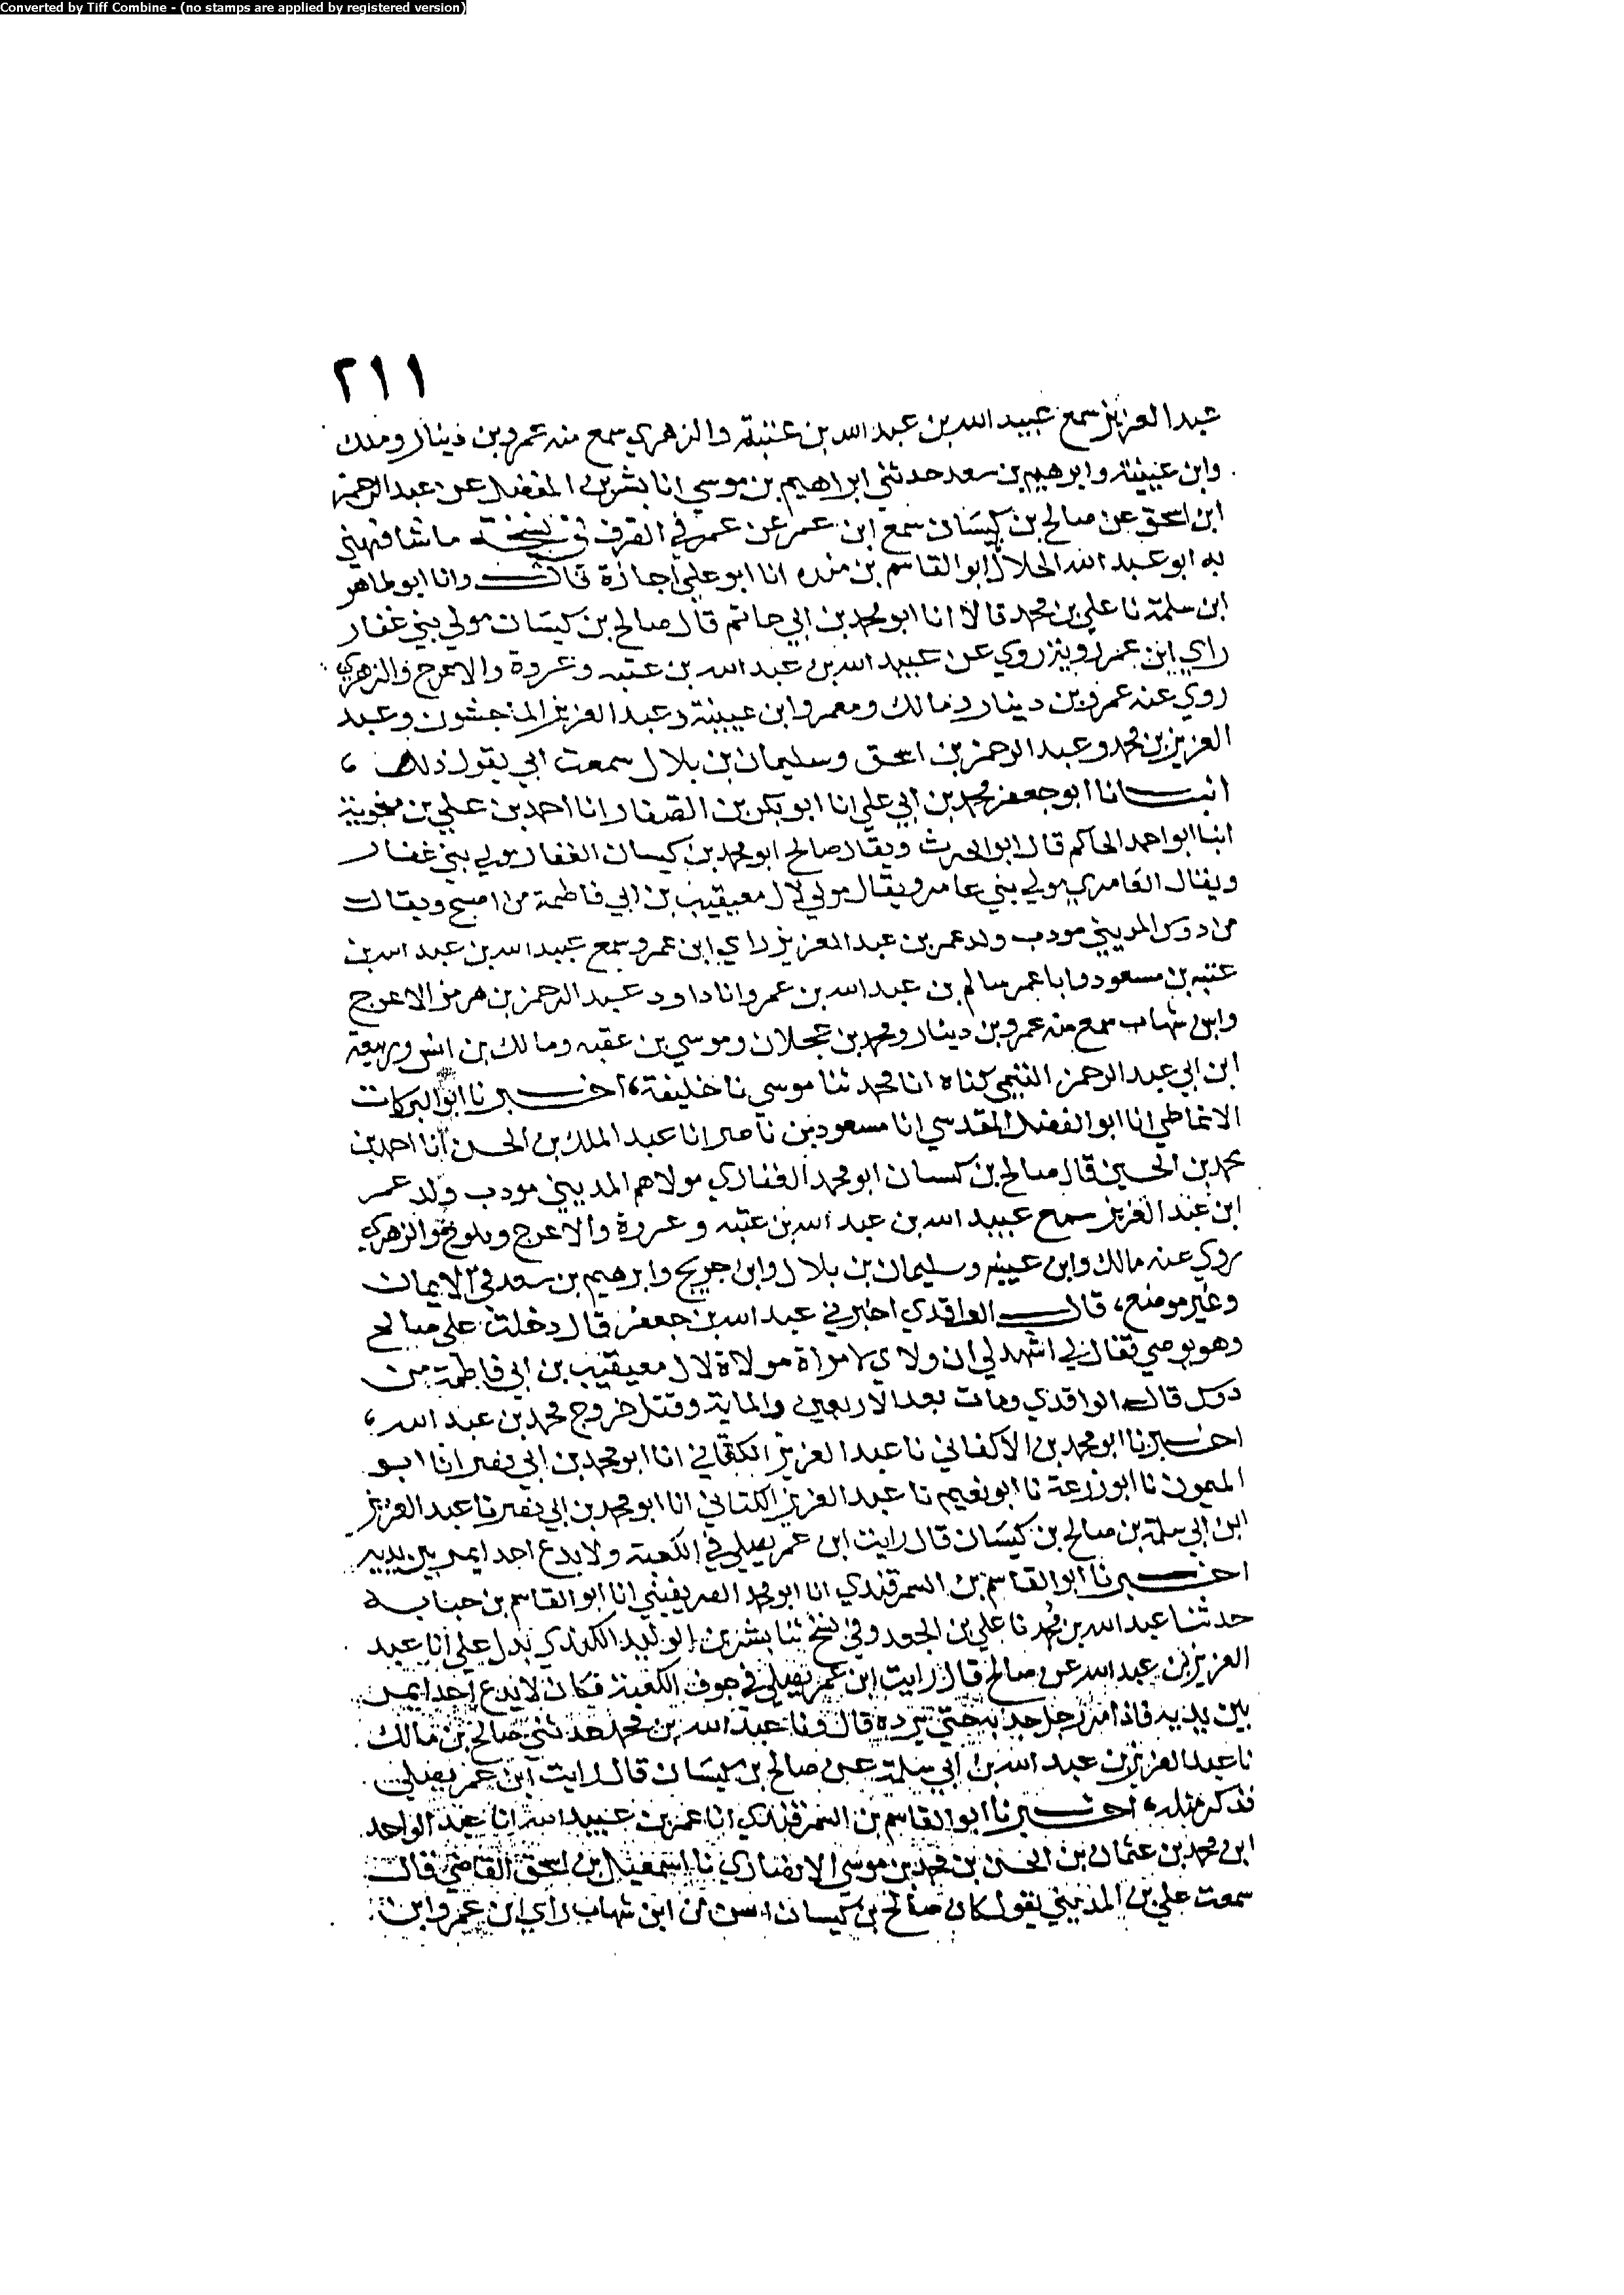 Converted by Tiff Combine - (no stamps are applied by registered version)
٢١١
عبد العزيز سمع عبيد الله بن عبد الله بن عتبة والزهري سمع منه عمرو بن دينار وملك
وابن عيينة وابرهيم بن سعد حدثني ابراهيم بن موسي انا بشر بن المفضل عن عبد الرحمن
ابن اسحق عن صالح بن كيسان سمع ابن عمر عن عمر في القرف في نسخة ما شافهني
به ابو عبد الله الخلال ابو القاسم بن منده انا ابو علي اجازة قال وانا ابو طاهر
ابن سلمة نا علي بن محمد قالا انا ابو محمد بن ابي حاتم قال صالح بن كيسان مولي بني غفار
راي ابن عمر روي عن عبيد الله بن عبد الله بن عتبه وعروة والاعرج والزهري
روي عنه عمرو بن دينار ومالك ومعمر وابن عيينة وعبد العزيز الماجشون وعبد
العزيز بن محمد وعبد الرحمن بن اسحق وسليمان بن بلال سمعت ابي يقول ذلك ،
انبانا ابو جعفر محمد بن ابي علي انا ابو بكر بن الصفار انا احمد بن علي بن منجوية
انبا ابو احمد الحاكم قال ابو الحرث ويقال صالح ابو محمد بن كيسان الغفار مولي بني غفار
ويقال العامري مولي بني عامر ويقال مولي لال معيقيب بن ابي فاطمة من اصبح ويقال
من دوس المديني مودب ولد عمر بن عبد العزيز راي ابن عمر وسمع عبيد الله بن عبد الله بن
عتبه بن مسعود وابا عمر سالم بن عبد الله بن عمر وانا داود عبد الرحمن بن هرمز الاعرج
وابن شهاب سمع منه عمرو بن دينار ومحمد بن عجلان وموسي بن عقبه ومالك بن انس وربيعة
ابن ابي عبد الرحمن التيمي كناه انا محمد ثنا موسي نا خليفة، اخبرنا ابو البركات
الانماطي انا ابو الفضل المقدسي انا مسعود بن ناصر انا عبد الملك بن الحسن انا احمد بن
محمد بن الحسين قال صالح بن كيسان ابو محمد الغفاري مولاهم المديني مودب ولد عمر
ابن عبد العزيز سمع عبيد الله بن عبد الله بن عتبه وعروة والاعرج والزهري
روي عنه مالك وابن عيينه وسليمان بن بلال وابن جريج وابرهيم بن سعد في الايمان
وغير موضع، قال الواقدي اخبرني عبد الله بن جعفر قال دخلت علي صالح
وهو يوصي فقال لي اشهد لي ان ولاي لامراة مولاة لال معيقيب بن ابي فاطمة من
دوس قال الواقدي ومات بعد الاربعين والماية وقتل خروج محمد بن عبد الله ،
اخبرنا ابو محمد بن الاكفاني نا عبد العزيز الكتاني انا ابو محمد بن ابي نصر انا ابو
الميمون نا ابو زرعة نا ابو نعيم نا عبد العزيز الكتاني انا ابو محمد بن ابي نصر نا عبد العزيز
ابن ابي سلمة بن صالح بن كيسان قال رايت ابن عمر يصلي في الكعبة ولا يدع احدا يمر بين يديه
اخبرنا ابو القاسم بن السمرقندي انا ابو محمد الصريفيني انا ابو القاسم بن حبابه
حدثنا عبد الله بن محمد نا علي بن الجعد وفي نسخ ثنا بشر بن الوليد الكندي بدل علي انا عبد
العزيز بن عبد الله عن صالح قال رايت ابن عمر يصلي في جوف الكعبة فكان لا يدع احدا يمر
بين يديه فاذا مر رجل جبذه حتي يرده قال ونا عبد الله بن محمد حدثني صالح بن مالك
نا عبد العزيز بن عبد الله بن ابي سلمة عن صالح بن كيسان قال رايت ابن عمر يصلي
فذكر مثله، اخبرنا ابو القاسم بن السمرقندي انا عمر بن عبيد الله انا عبد الواحد
ابن محمد بن عثمان بن الحسن بن محمد بن موسي الانصاري نا اسمعيل بن اسحق القاضي قال
سمعت علي بن المديني يقول كان صالح بن كيسان اسن من ابن شهاب راي ابن عمر وابن